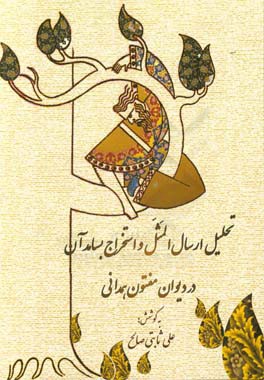 تحلیل ارسال المثل و استخراج بسامد آن
در دیوان مفتون همدانی
بکوشش:
علی ثابتی صالح